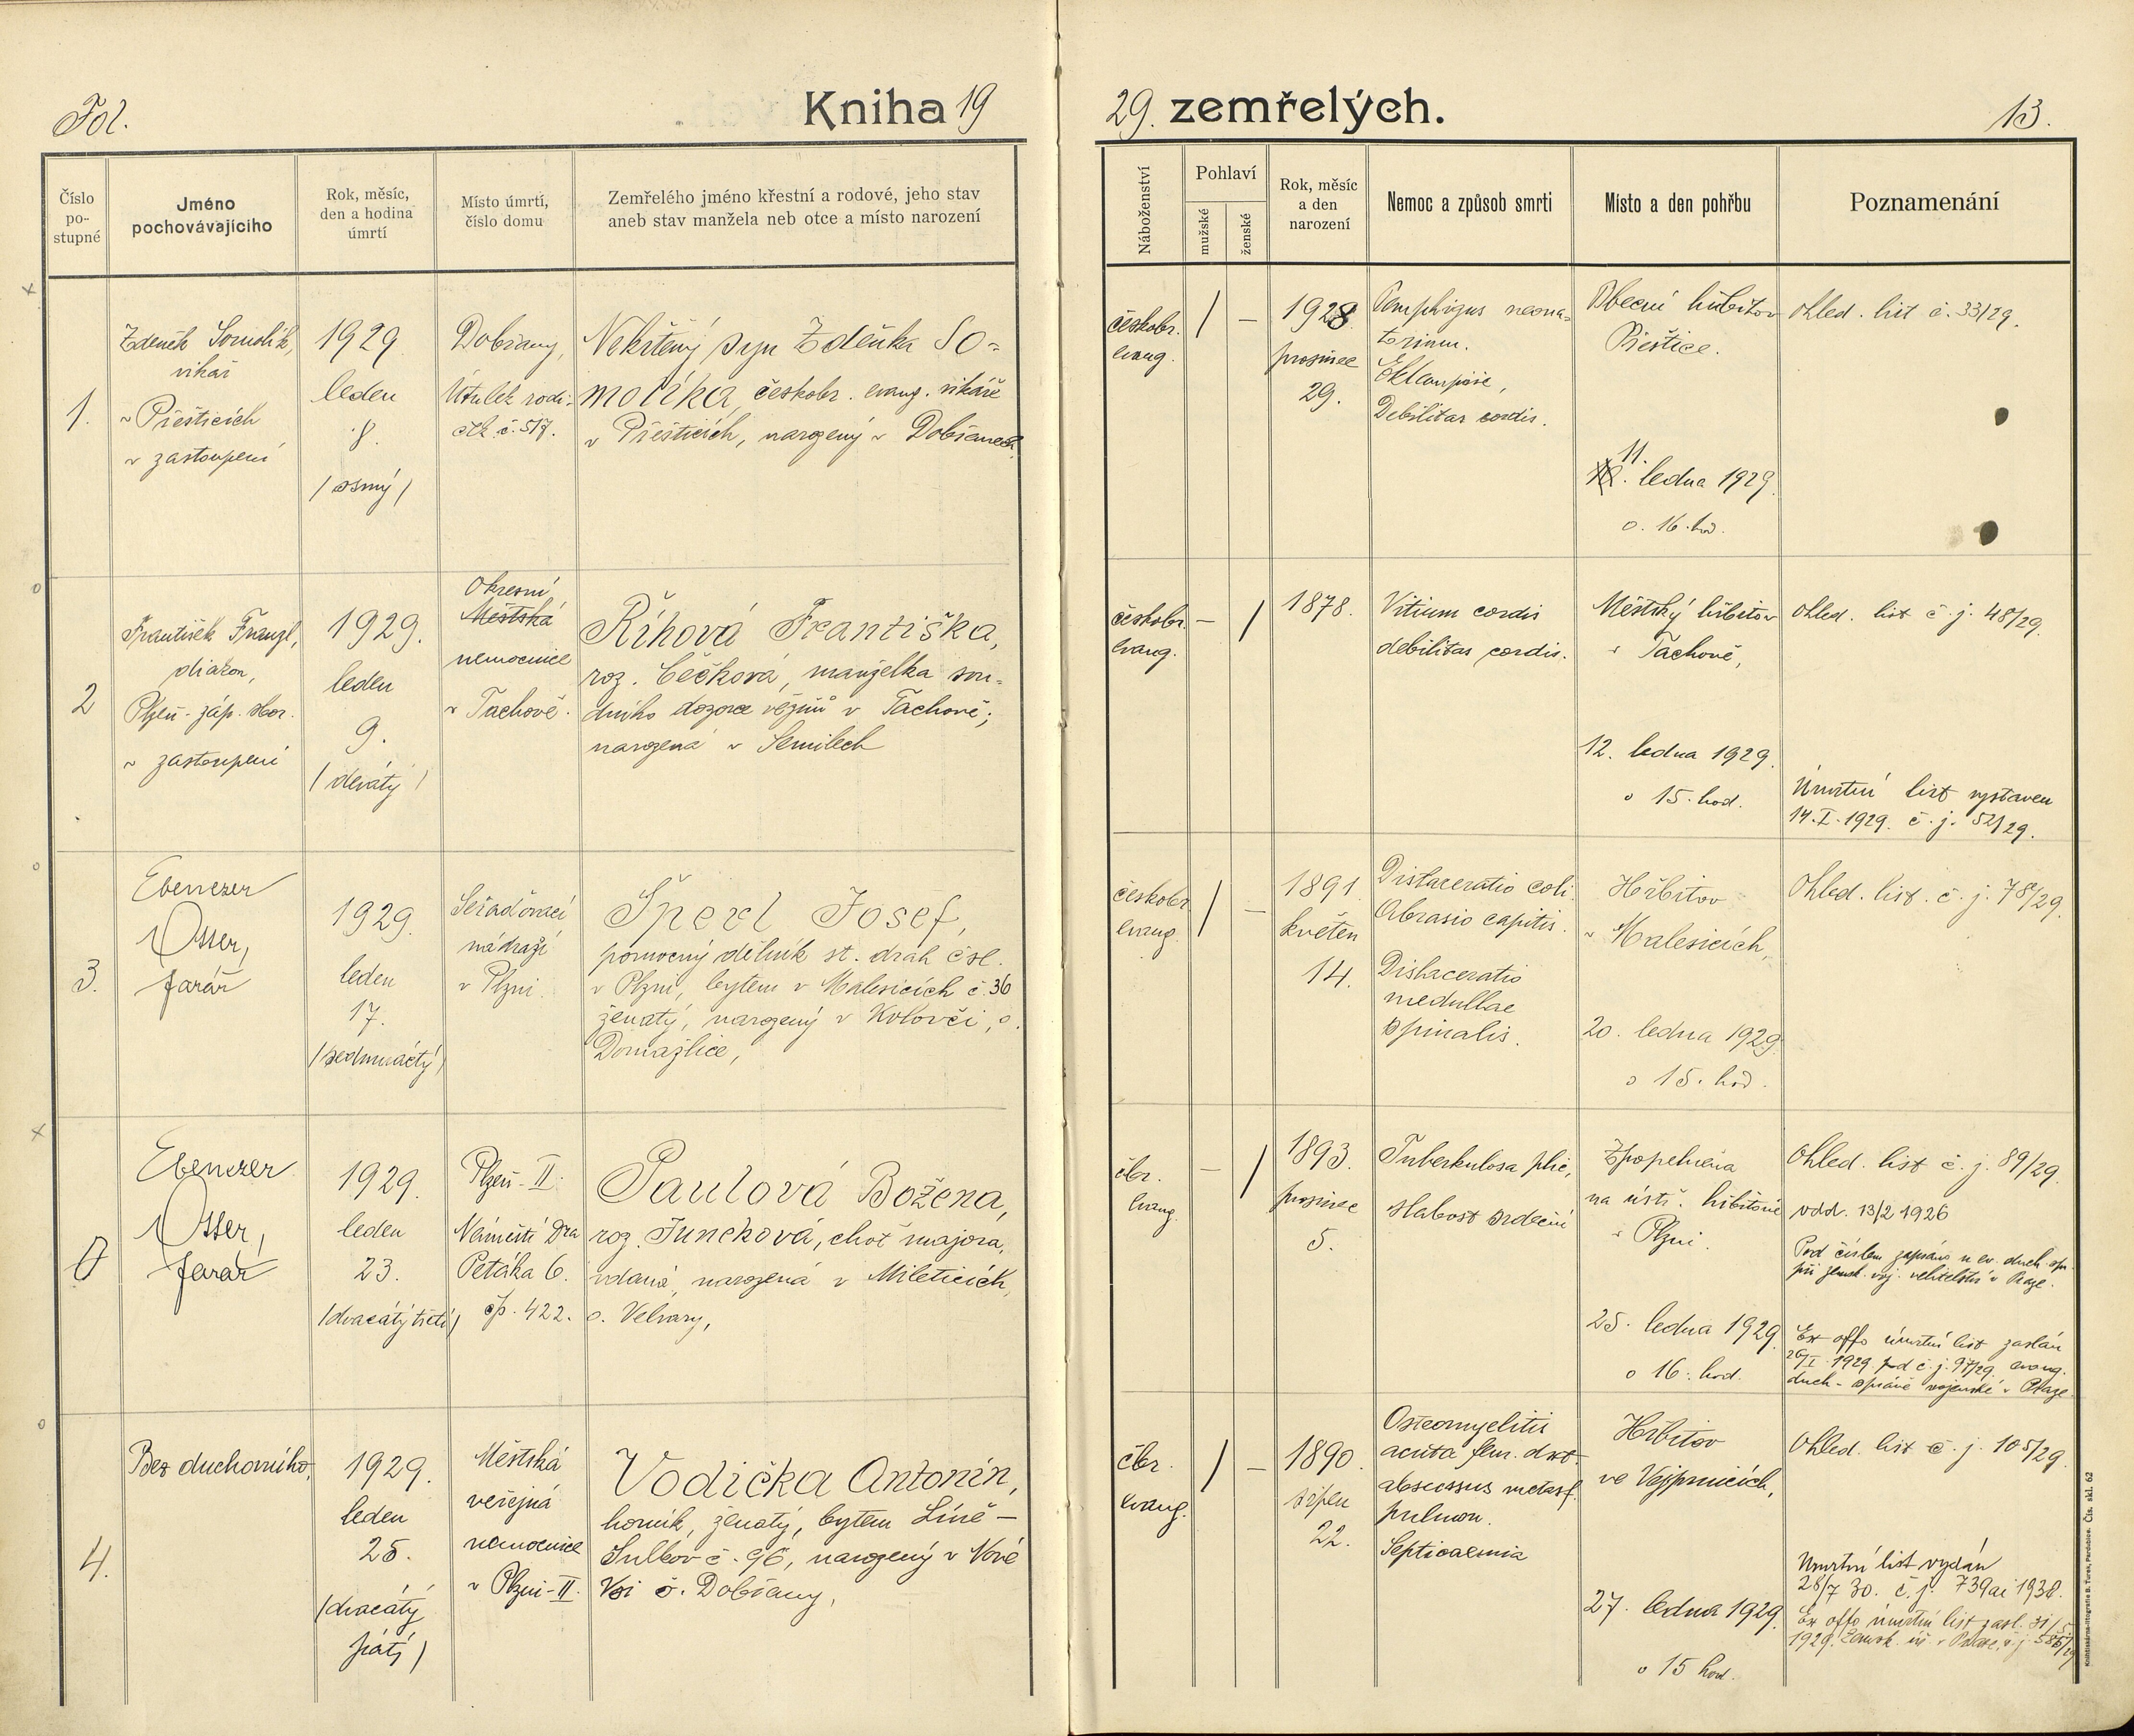 Fol.
Kniha 19
29. zemřelých.
13.
Číslo
po-
stupné
Jméno
pochovávajícího
Rok, měsíc,
den a hodina
úmrtí
Místo úmrtí,
číslo domu
Zemřelého jméno křestní a rodové, jeho stav
aneb stav manžela neb otce a místo narození
Náboženství
Pohlaví
mužské
ženské
Rok, měsíc
a den
narození
Nemoc a způsob smrti
Místo a den pohřbu
Poznamenání
1.
Zdeněk Somolík,
vikář
v Přešticích
v zastoupení
1929
leden
8.
/osmý/
Dobřany,
Útulek rodi-
ček č. 517.
Nekřtěný syn Zdeňka So-
molíka, českobr. evang. vikáře
v Přešticích, narozený v Dobřanech
českobr.
evang.
/
–
1928
prosinec
29.
Pemphigus neona-
torum.
Eklampsie,
Debilitas cordis.
Obecní hřbitov
Přeštice.
11.
ledna 1929.
o. 16. hod.
Ohled. list č. 33/29.
2
František Franzl,
diakon,
Plzeň - záp. sbor.
v zastoupení
1929.
leden
9.
/devátý/
Okresní
Městská
nemocnice
v Tachově.
Říhová Františka,
roz. Čečková, manželka sou-
dního dozorce vězňů v Tachově;
narozená v Semilech
českobr.
evang.
–
/
1878.
Vitium cordis
debilitas cordis.
Městský hřbitov
v Tachově,
12. ledna 1929.
o 15. hod.
Ohled. list č. j. 48/29.
Úmrtní list vystaven
14. I. 1929. č. j. 52/29.
3.
Ebenezer
Otter,
farář
1929.
leden
17.
/sedmnáctý/
Seřaďovací
nádraží
v Plzni
Šperl Josef,
pomocný dělník st. drah čsl.
v Plzni, bytem v Malesicích č. 36
ženatý, narozený v Koloveči, o.
Domažlice,
českobr.
evang.
/
–
1891
květen
14.
Dislaceratio coli.
Abrasio capitis.
Dislaceratio
medullae
spinalis.
Hřbitov
v Malesicích,
20. ledna 1929.
o 15. hod.
Ohled. list. č. j. 78/29.
0
Ebenezer
Otter,
farář
1929.
leden
23.
/dvacátý třetí/
Plzeň - II.
Náměstí Dra
Petáka 6.
čp. 422.
Paulová Božena,
roz. Junchová, choť majora,
vdaná, narozená v Mileticích,
o. Velvary,
čbr.
evang.
–
/
1893.
prosinec
5.
Tuberkulosa plic,
slabost srdeční
Zpopelněna
na ústř. hřbitově
v Plzni.
25. ledna 1929.
o 16. hod.
Ohled. list č. j. 89/29.
vdd. 13/2 1926
Pod číslem zapsáno u ev. duch. spr.
při zemsk. voj. velitelství v Praze.
Ex offo úmrtní list zaslán
26/I. 1929. pod č. j. 97/29. evang.
duch. správě vojenské v Praze
4.
Bez duchovního,
1929.
leden
25.
/dvacátý
pátý/
Městská
veřejná
nemocnice
v Plzni - II.
Vodička Antonín,
horník, ženatý, bytem Líně –
Sulkov č. 96, narozený v Nové
Vsi o. Dobřany,
čbr.
evang.
/
–
1890.
srpen
22.
Osteomyelitis
acuta fem. dext.
abscessus metast.
pulmon.
Septicaemia
Hřbitov
ve Vejprnicích,
27. ledna 1929.
o 15 hod.
Ohled. list č. j. 105/29.
Úmrtní list vydán
28/7 30. č. j. 739 ai 1930.
Ex offo úmrtní list zasl. 31/5.
1929. Zemsk. úř. v Praze, č. j. 586/29
Čís. skl. 62